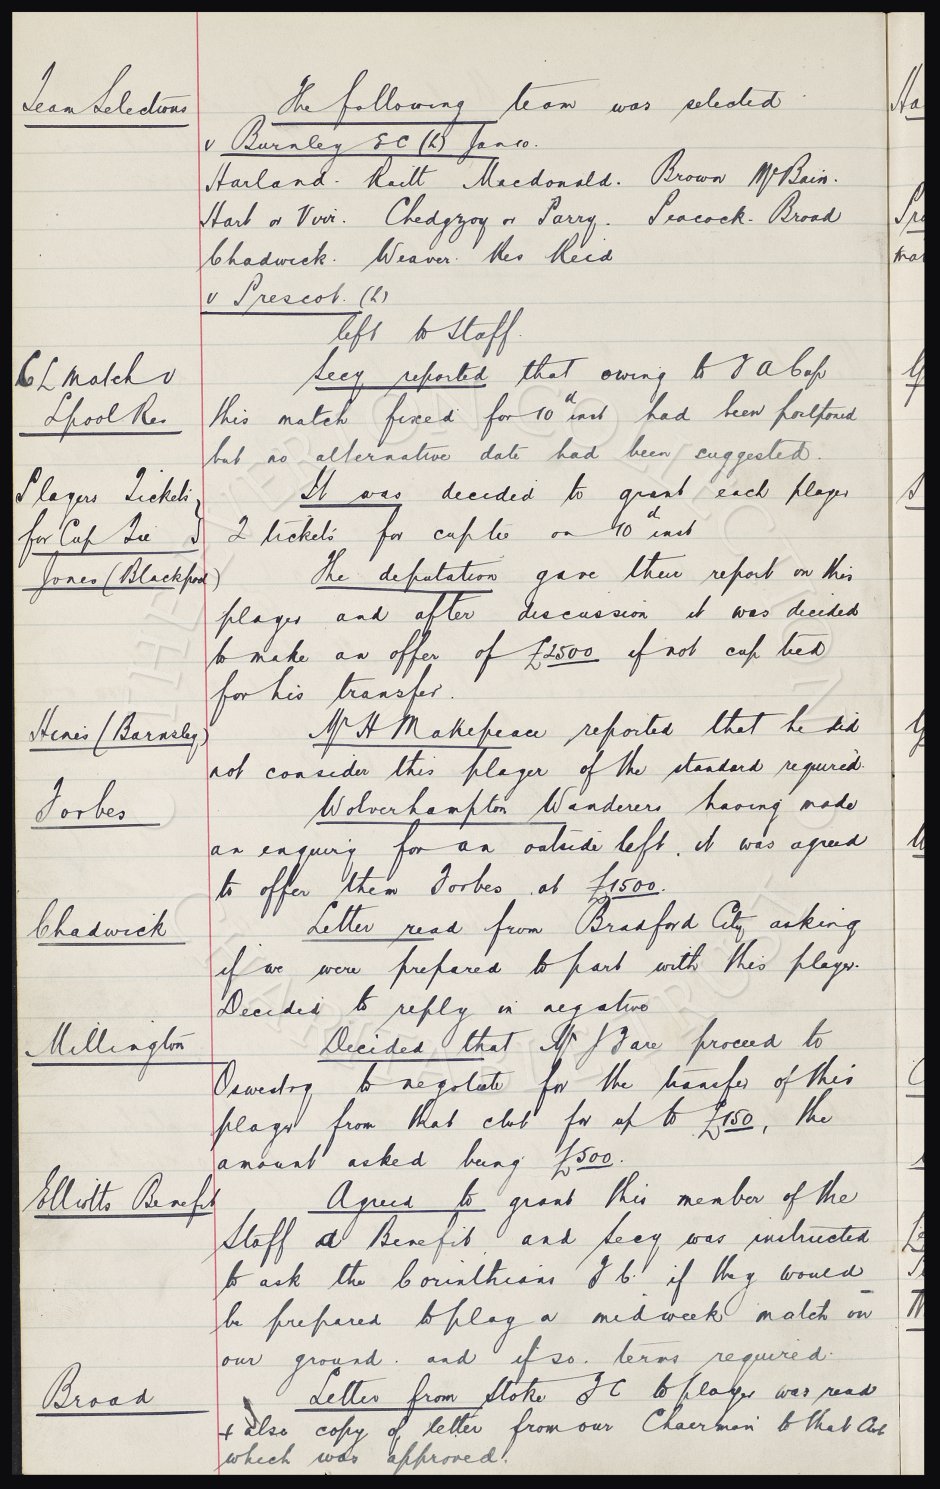 Team Selections
The following team was selected
v Burnley F C (L) Jan 10.
Harland. Raitt Macdonald. Brown McBain.
Hart or Virr. Chedgzoy or Parry. Peacock. Broad
Chadwick. Weaver. Res Reid
v Prescot. (L)
left to Staff.
C L Match v
L'pool Res
Secy reported that owing to F A Cup
this match fixed for 10th inst had been postponed
but no alternative date had been suggested.
Players Tickets
for Cup Tie
It was decided to grant each player
2 tickets for cup tie on 10th inst
Jones (Blackpool)
The deputation gave their report on this
player and after discussion it was decided
to make an offer of £2500 if not cup tied
for his transfer.
Hines (Barnsley)
Mr H Makepeace reported that he did
not consider this player of the standard required.
Forbes
Wolverhampton Wanderers having made
an enquiry for an outside left, it was agreed
to offer them Forbes at £1500.
Chadwick
Letter read from Bradford City asking
if we were prepared to part with this player.
Decided to reply in negative
Millington
Decided that Mr J Fare proceed to
Oswestry to negotiate for the transfer of this
player from that club for up to £150, the
amount asked being £500.
Elliotts Benefit
Agreed to grant this member of the
Staff a Benefit and Secy was instructed
to ask the Corinthians F C. if they would
be prepared to play a midweek match on
our ground. and if so. terms required.
Broad
Letter from Stoke F C to player was read
+ also copy of letter from our Chairman to that club
which was approved.